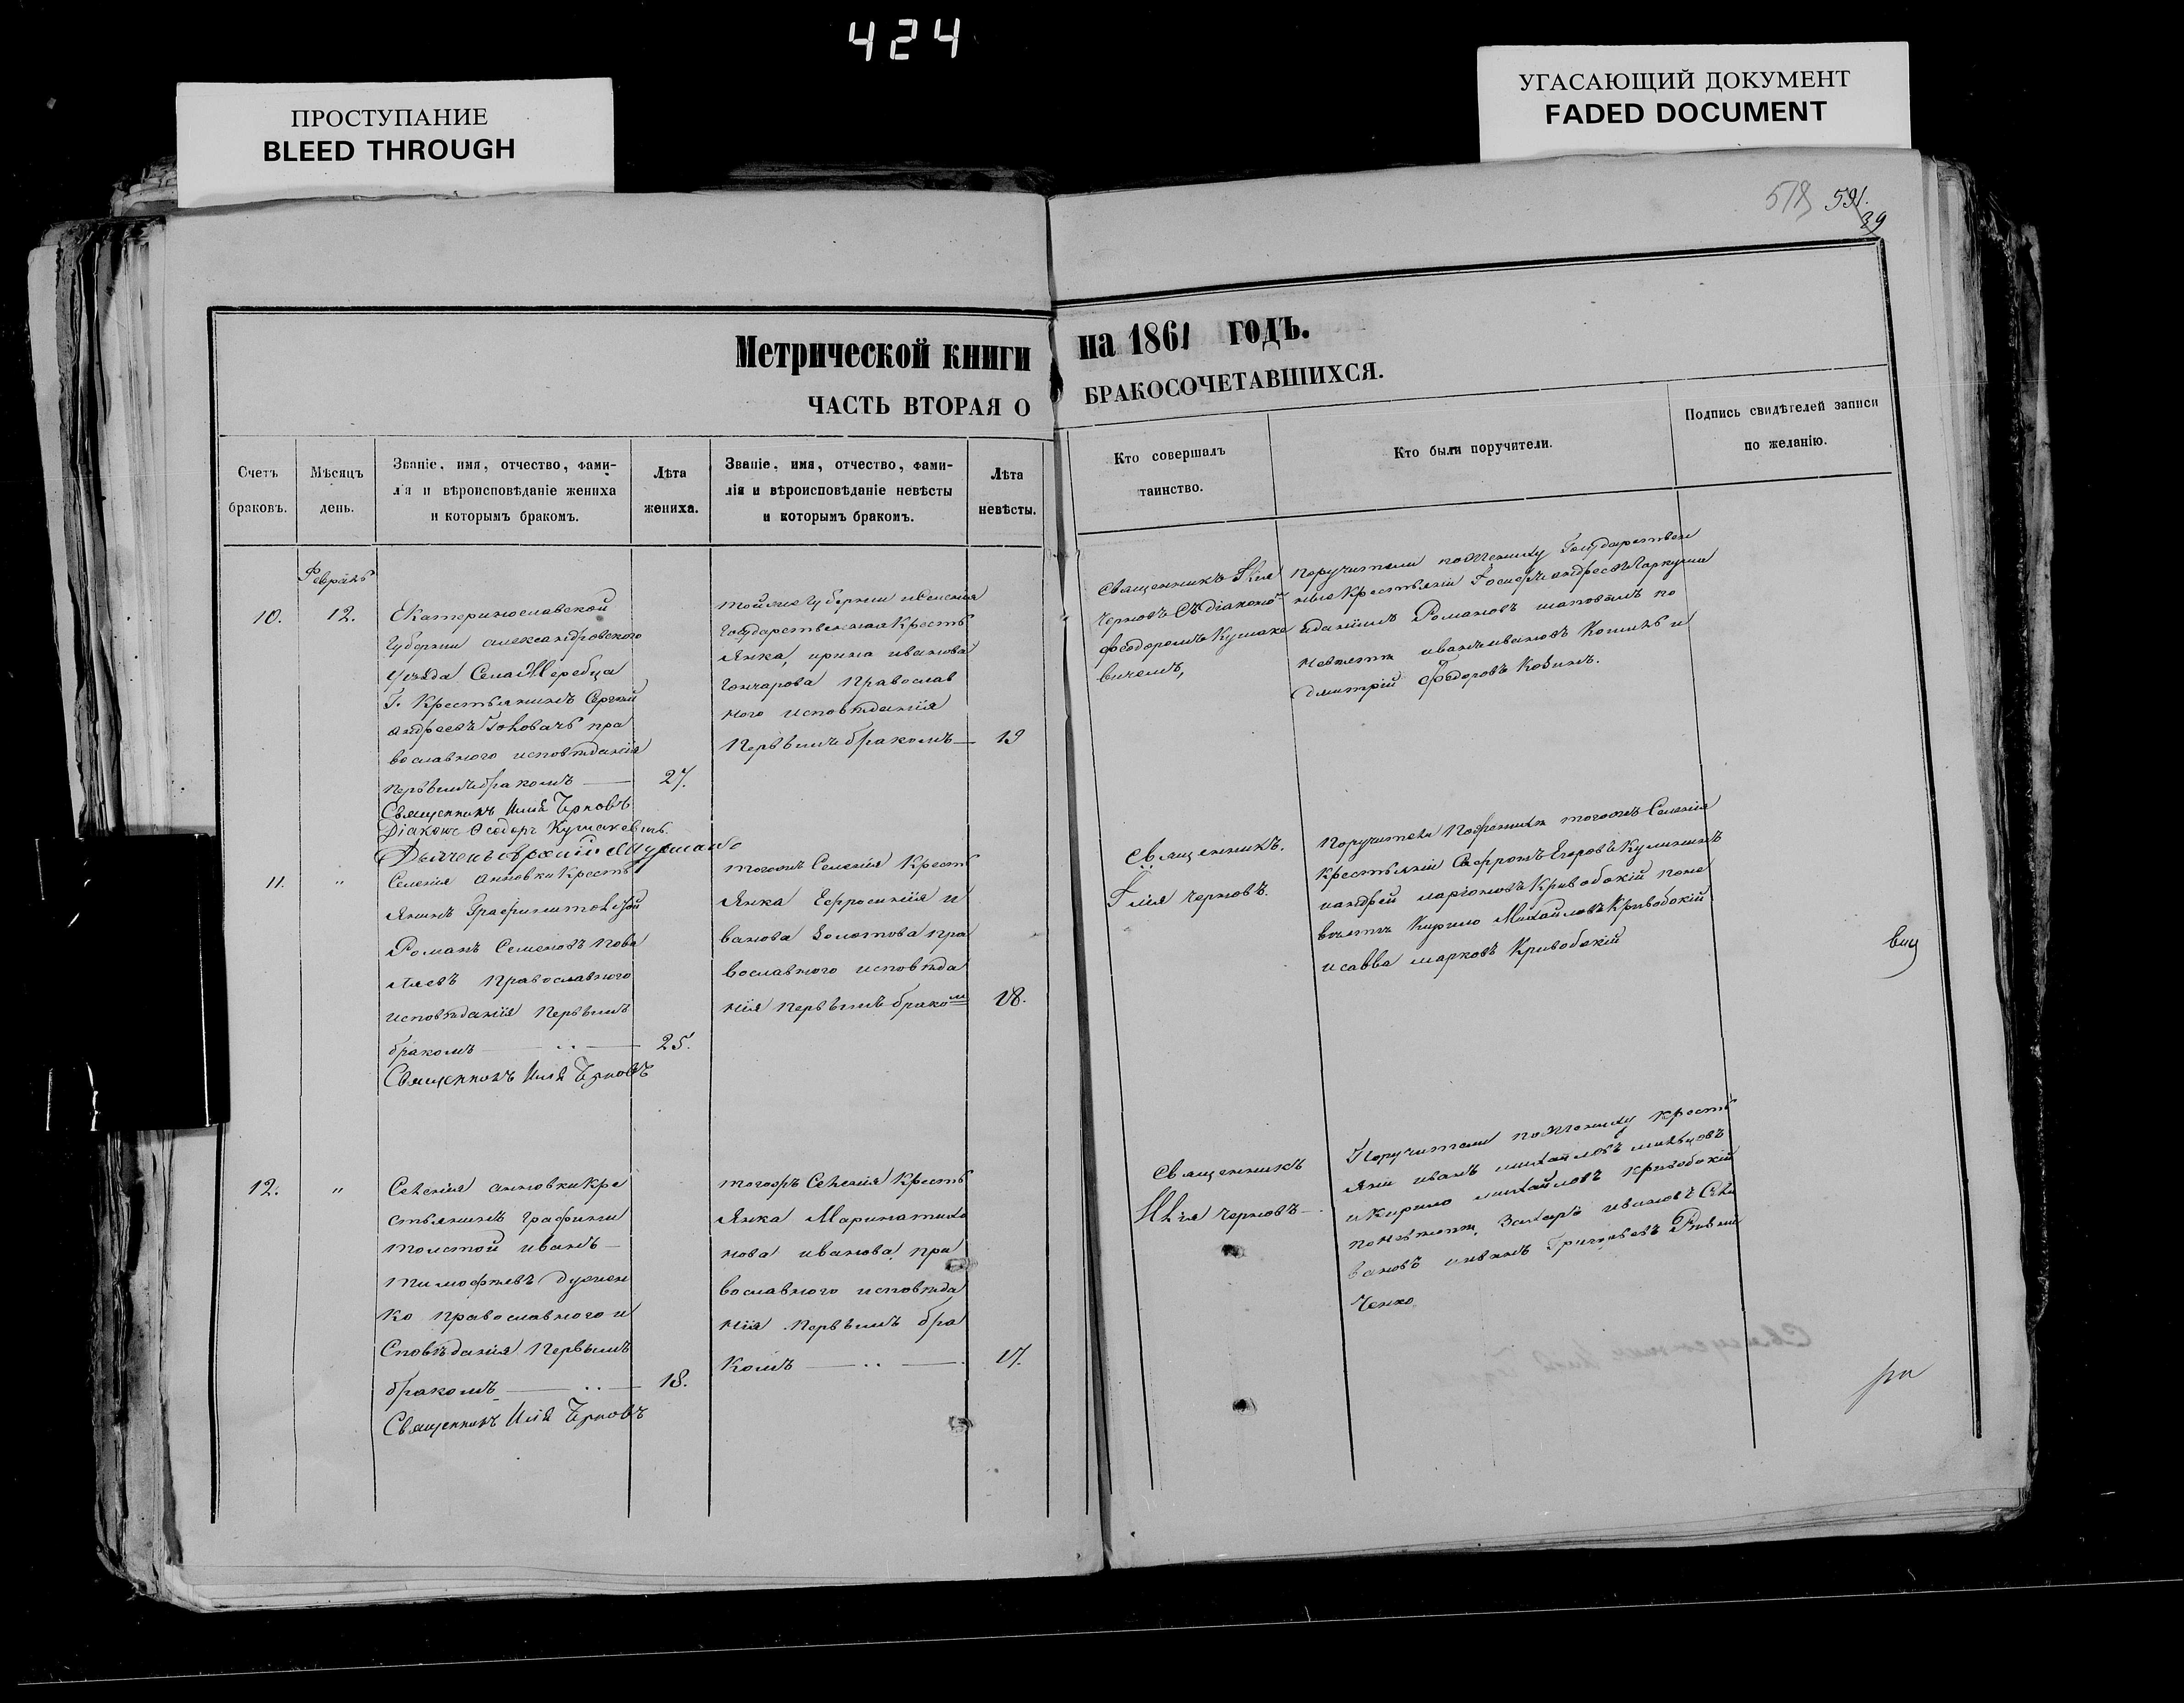 424
ПРОСТУПАНИЕ
BLEED THROUGH
УГАСАЮЩИЙ ДОКУМЕНТ
FADED DOCUMENT
518 591.
39
Метрической книги на 1861 годъ.
ЧАСТЬ ВТОРАЯ О БРАКОСОЧЕТАВШИХСЯ.
Счетъ
браковъ.
Мѣсяцъ
день.
Званіе, имя, отчество, фами-
лія и вѣроисповѣданіе жениха
и которымъ бракомъ.
Лѣта
жениха.
Званіе, имя, отчество, фами-
лія и вѣроисповѣданіе невѣсты
и которымъ бракомъ.
Лѣта
невѣсты.
Кто совершалъ
таинство.
Кто были поручители.
Подпись свидѣтелей записи
по желанію.
Февраль
10.
12.
Екатеринославской
Губерніи александровского
уѣзда Села Жеребца
Г. Крестьянинъ Сергѣй
андреевъ пра
вославного исповѣданія
первымъ бракомъ
27.
Священникъ Илія Черновъ
Діаконъ Ѳеодоръ Кушакевичъ
тойже Губерніи и Селенія
Государственная Кресть
янка, ирина иванова
Гончарова Православ
ного исповѣданія
Первымъ бракомъ
19
Священникъ Илія
Черновъ Съ діакономъ
феодоромъ Кушаке
вичемъ,
Поручители по жениху Государствен
ные Крестьяніи
Романовъ шаповалъ по
невѣстѣ иванъ ивановъ
Дмитрій Федоровъ Козинъ.
11.
"
Селенія анновки Кресть
янинъ Графини толстой
Романъ Семеновъ Пова
ляевъ Православного
исповѣданія Первымъ
бракомъ
25.
Священникъ Илія Черновъ
тогожъ Селенія Кресть
янка Ефросинія и
ванова Золотова пра
вославного исповѣда
нія первымъ браком
18.
Священникъ.
Илія Черновъ.
Поручители по женихѣ тогожъ Селенія
Крестьяніи Софронъ Егоровъ Кулининъ
и андрей Кривобокій поне
вѣстѣ Кирило Михайловъ Кривобокій
и савва марковъ Кривобокій
12.
"
Селенія анновки Кре
стьянинъ Графини
толстой иванъ
тимофѣевъ
ко православного и
Сповѣданія Первымъ
бракомъ
18.
Священникъ Илія Черновъ
тогожъ Селенія Кресть
янка Марина тихо
нова иванова, пра
вославного исповѣда
нія Первымъ бра
комъ
17.
Священникъ
Илія Черновъ
Поручители по жениху Кресть
яніи иванъ михайловъ
и Кирило михайловъ Кривобокій
по невѣстѣ, Захаръ ивановъ
вановъ иванъ Григорьевъ
ченко